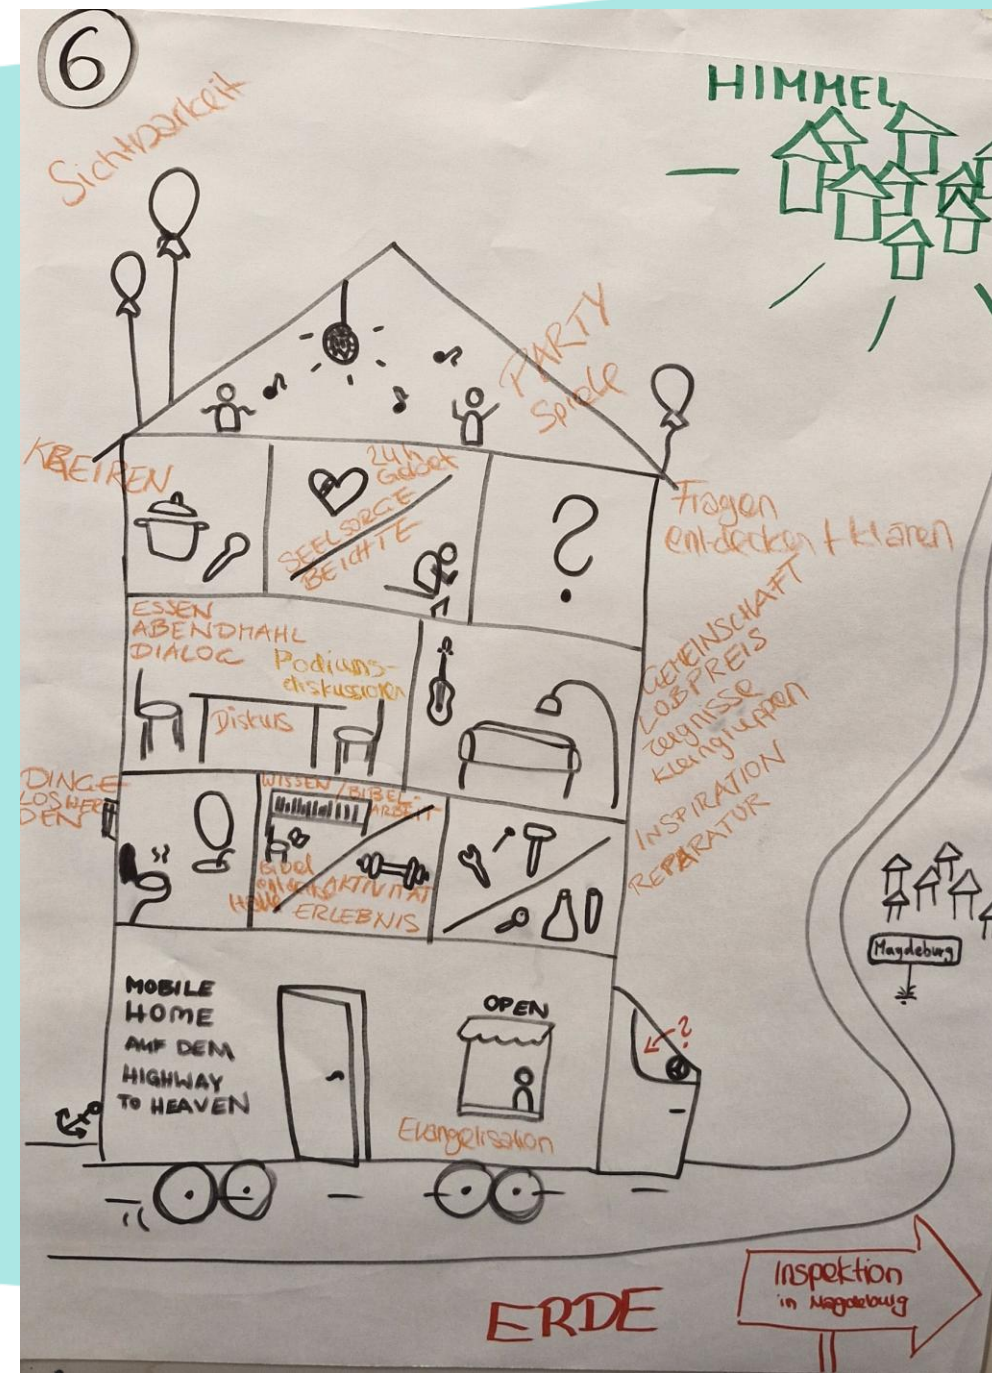 6
Sichtbarkeit
HIMMEL
PARTY
Spiele
24h
Gebet
SEELSORGE
BEICHTE
Fragen
entdecken + klären
ESSEN
ABENDMAHL
DIALOG
Podiums-
diskussionen
Diskurs
GEMEINSCHAFT
LOBPREIS
Zeugnisse
Kleingruppen
INSPIRATION
REPARATUR
DINGE
LOSWER
DEN
WISSEN / BIBEL-
ARBEIT
Bibel
AKTIVITÄT
ERLEBNIS
Magdeburg
MOBILE
HOME
AUF DEM
HIGHWAY
TO HEAVEN
OPEN
?
?
Evangelisation
ERDE
Inspektion
in Magdeburg